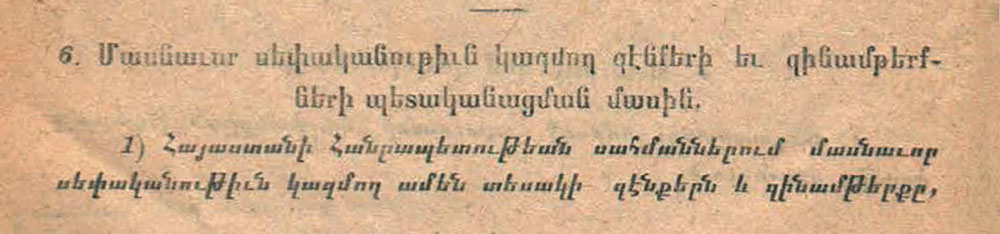 6. Մասնաւոր սեփականութիւն կազմող զէնքերի եւ զինամթերք-
ների պետականացման մասին.
1) Հայաստանի Հանրապետութեան սահմաններում մասնաւոր
սեփականութիւն կազմող ամեն տեսակի զէնքերն և զինամթերքը,